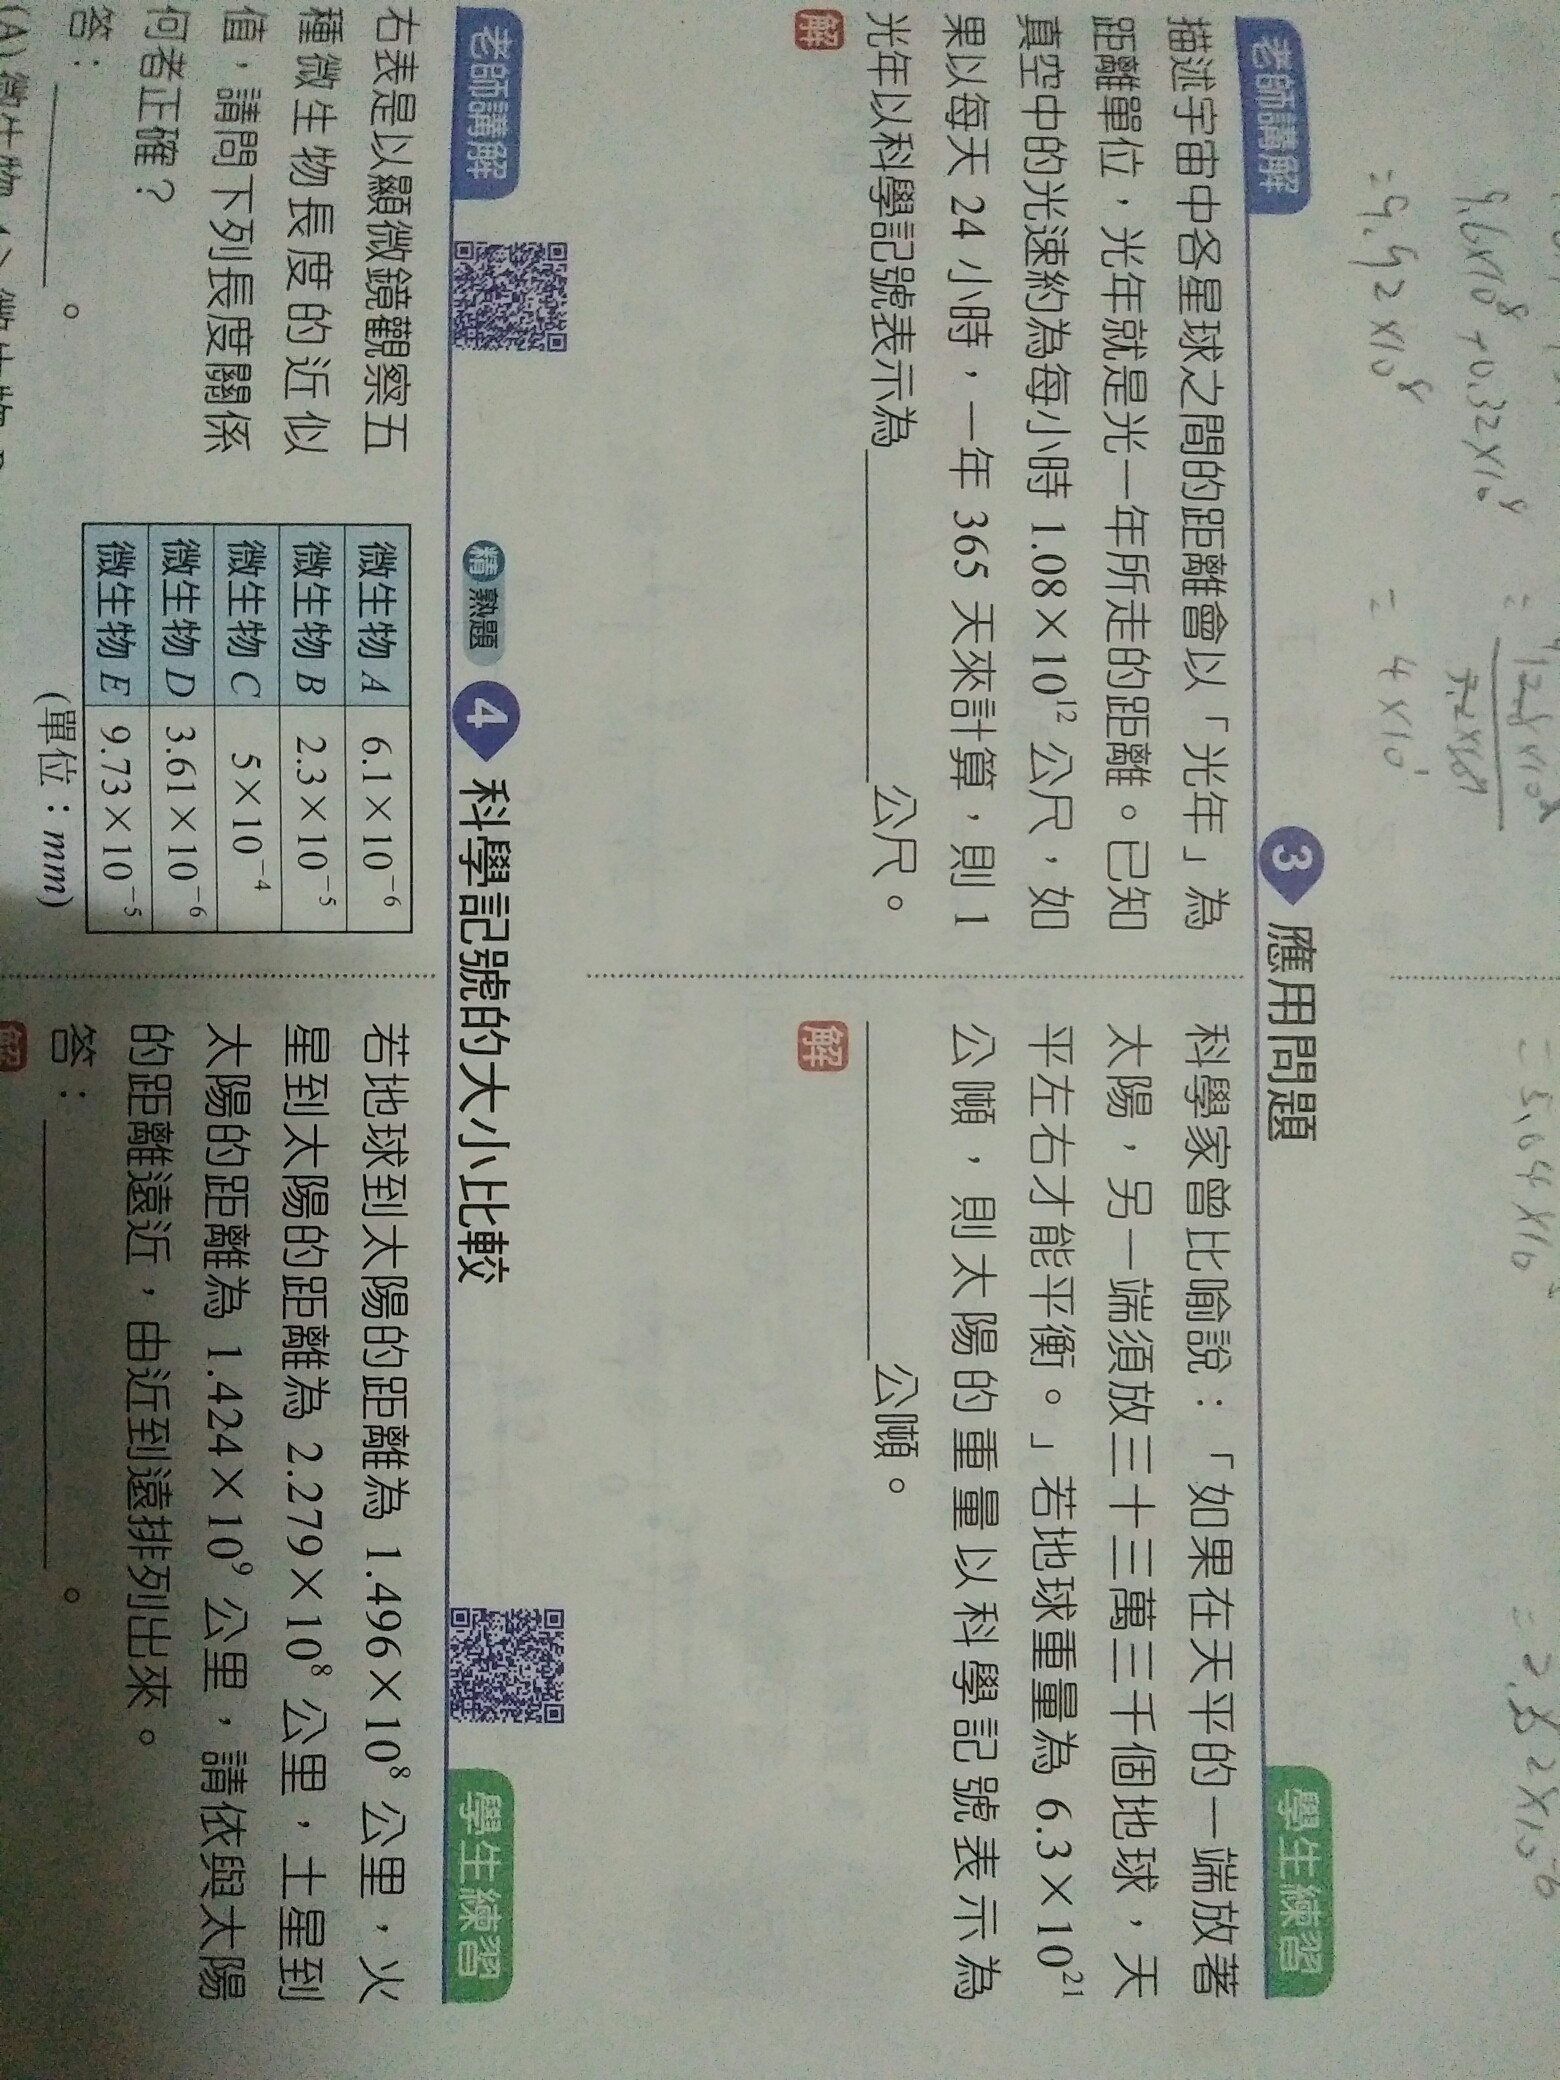 = 9.92×10⁸
= 4×10¹
3 應用問題
老師講解
學生練習
描述宇宙中各星球之間的距離會以「光年」為
距離單位，光年就是光一年所走的距離。已知
真空中的光速約為每小時 1.08×10¹² 公尺，如
果以每天 24 小時，一年 365 天來計算，則 1
光年以科學記號表示為＿＿＿＿＿＿公尺。
解
科學家曾比喻說：「如果在天平的一端放著
太陽，另一端須放三十三萬三千個地球，天
平左右才能平衡。」若地球重量為 6.3×10²¹
公噸，則太陽的重量以科學記號表示為
＿＿＿＿＿＿公噸。
解
老師講解
精熟題 4 科學記號的大小比較
學生練習
右表是以顯微鏡觀察五
種微生物長度的近似
值，請問下列長度關係
何者正確？
答：＿＿＿＿。
微生物 A 6.1×10⁻⁶
微生物 B 2.3×10⁻⁵
微生物 C 5×10⁻⁴
微生物 D 3.61×10⁻⁶
微生物 E 9.73×10⁻⁵
(單位：mm)
若地球到太陽的距離為 1.496×10⁸ 公里，火
星到太陽的距離為 2.279×10⁸ 公里，土星到
太陽的距離為 1.424×10⁹ 公里，請依與太陽
的距離遠近，由近到遠排列出來。
答：＿＿＿＿＿＿＿＿。
解